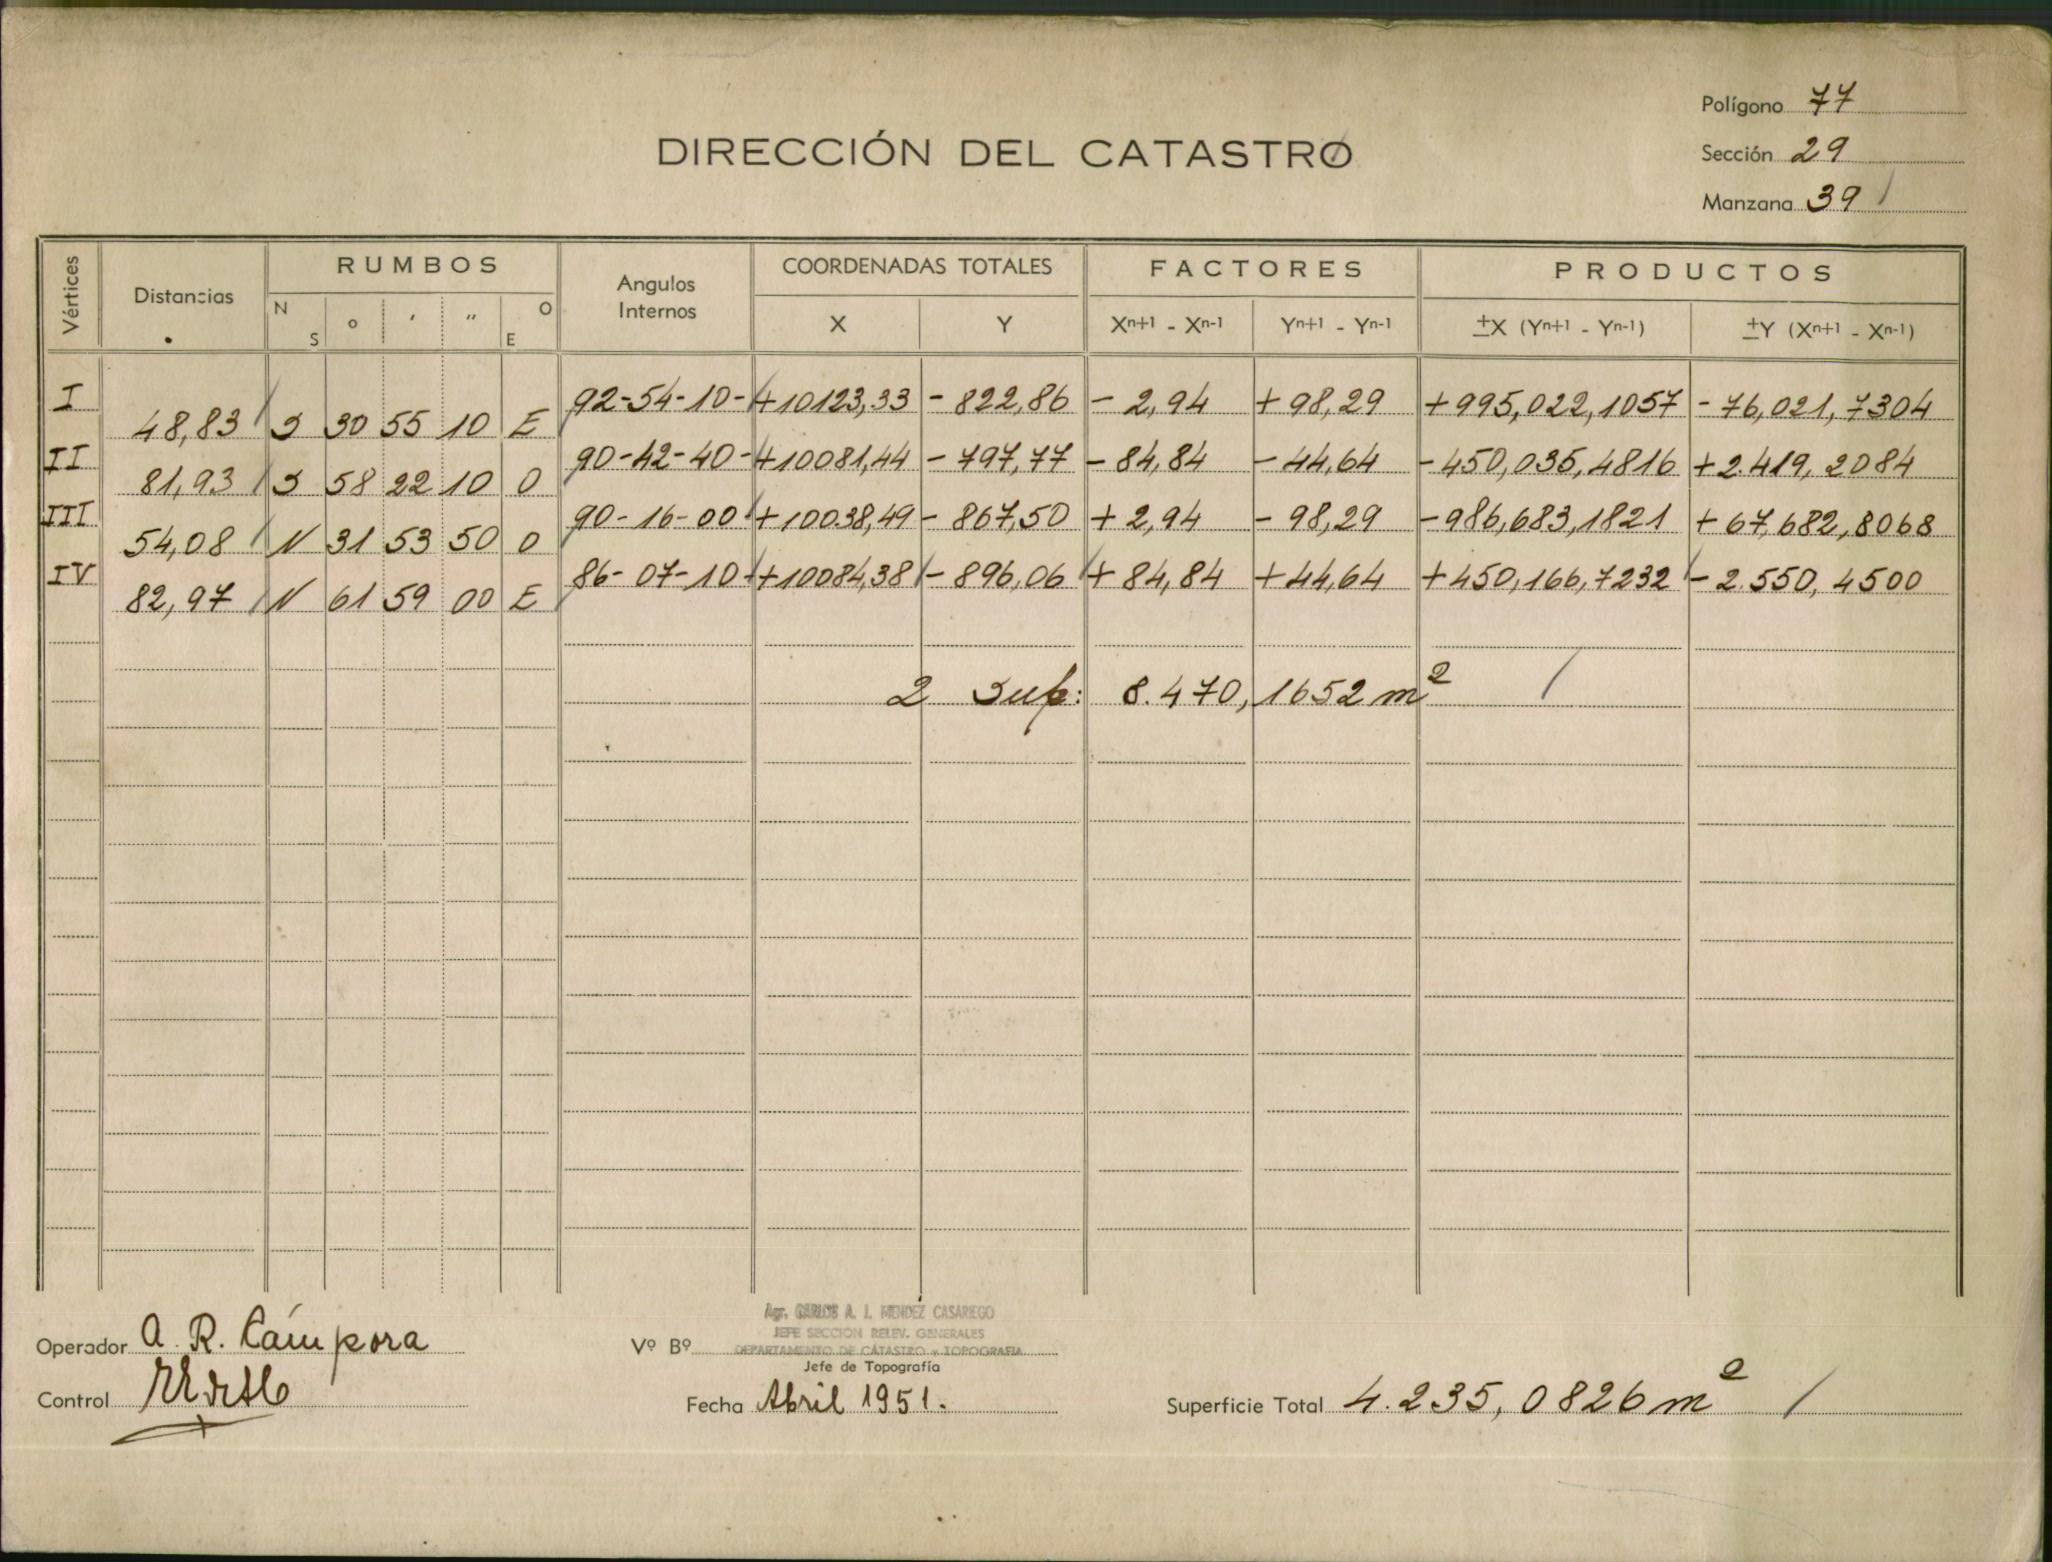 Polígono 77
DIRECCIÓN DEL CATASTRO
Sección 29
Manzana 39
Vértices Distancias RUMBOS Angulos Internos COORDENADAS TOTALES FACTORES PRODUCTOS
N S o ' '' O E X Y Xn+1 - Xn-1 Yn+1 - Yn-1 ±X (Yn+1 - Yn-1) ±Y (Xn+1 - Xn-1)
I 92-54-10- +10123,33 - 822,86 - 2,94 + 98,29 +995,022,1057 - 76,021,7304
48,83 S 30 55 10 E
II 90-42-40- +10081,44 - 797,77 - 84,84 - 44,64 -450,035,4816 +2.419,2084
81,93 S 58 22 10 O
III 90-16-00 +10038,49 - 867,50 + 2,94 - 98,29 -986,683,1821 + 67,682,8068
54,08 N 31 53 50 O
IV 86-07-10- +10084,38 - 896,06 + 84,84 + 44,64 +450,166,7232 - 2.550,4500
82,97 N 61 59 00 E
2 Sup: 8.470,1652 m²
Agr. CARLOS A. I. MENDEZ CASARIEGO
JEFE SECCION RELEV. GENERALES
Operador A. R. Cámpora Vº Bº DEPARTAMENTO DE CATASTRO y TOPOGRAFIA
Jefe de Topografía
Control Fecha Abril 1951. Superficie Total 4.235,0826 m²